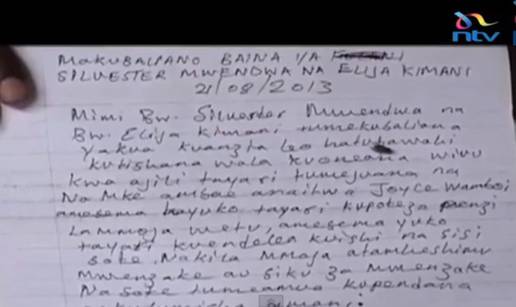 ntv
MAKUBALIANO BAINA YA
SILVESTER MWENDWA NA ELIJA KIMANI
21/08/2013
Mimi Bw. Silvester Mwendwa na
Bw. Elija Kimani tumekubaliana
yakua kuanzia Leo hatutawahi
kubishana wala kuoneana wivu
kwa ajili tayari tumejuana na
Na mke ambae anaitwa Joyce Wamboi
amesema hayuko tayari kupoteza penzi
La mmoja wetu, amesema yuko
tayari kuendelea kuishi na sisi
sote. Nakila mmoja atamheshimu
Mwenzake au siku za Mwenzake
Na sote tumeamua kupendana